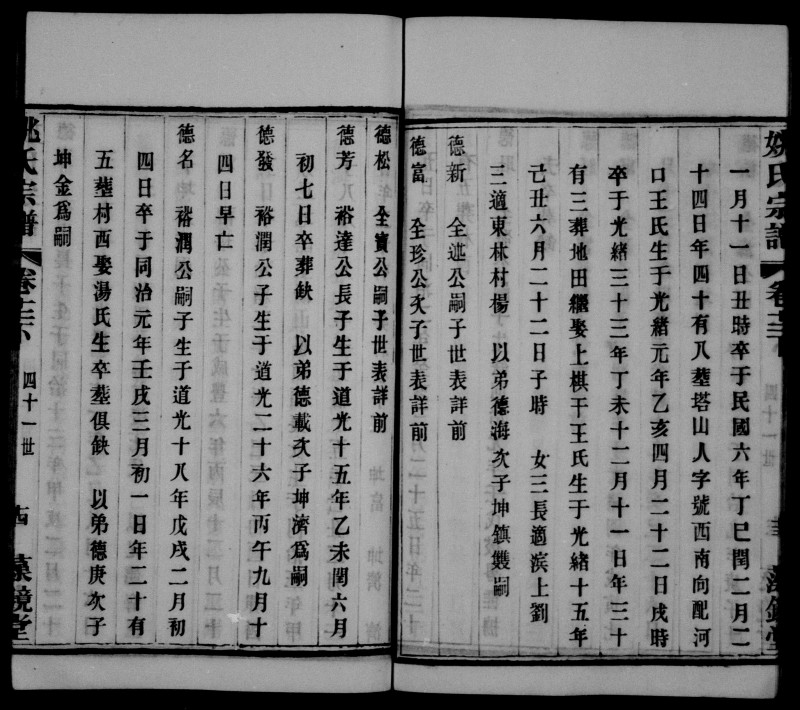 姚氏宗譜
一月十一日丑時卒于民國六年丁巳閏二月二
十四日年四十有八塟塔山人字號西南向配河
口王氏生于光緒元年乙亥四月二十二日戌時
卒于光緒三十三年丁未十二月十一日年三十
有三葬地田繼娶上棋干王氏生于光緒十五年
己丑六月二十二日子時 女三長適濱上劉
三適東林村楊 以弟德海次子坤鎮雙嗣
德新 全述公嗣子世表詳前
德富 全珍公次子世表詳前
德松 全寶公嗣子世表詳前
德芳 裕達公長子生于道光十五年乙未閏六月
初七日卒葬缺 以弟德載次子坤濟爲嗣
德發 裕潤公子生于道光二十六年丙午九月十
四日早亡
德名 裕潤公嗣子生于道光十八年戊戌二月初
四日卒于同治元年壬戌三月初一日年二十有
五塟村西娶湯氏生卒塟俱缺 以弟德庚次子
坤金爲嗣
姚氏宗譜 卷 四十一世 堂